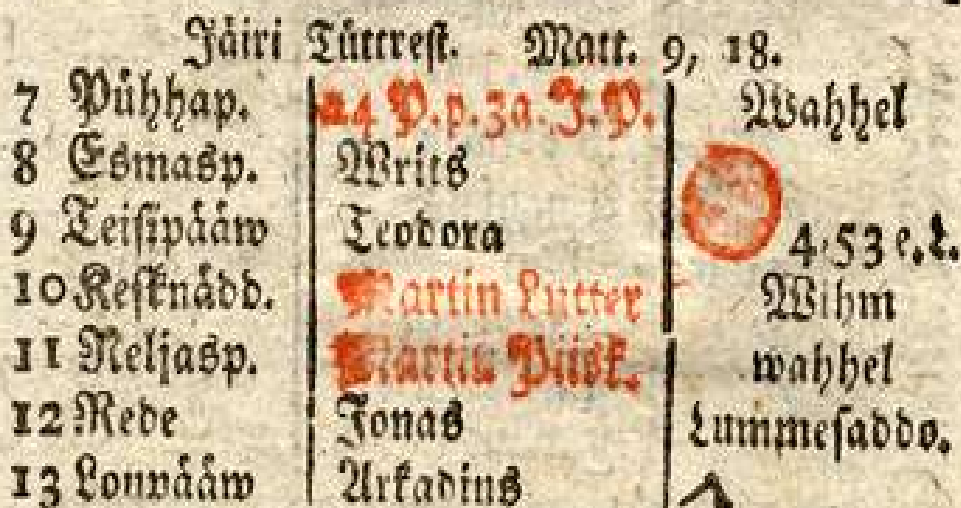 Jäiri Tüttrest. Matt. 9, 18.
7 Pühhap. 24 P. p. 3a. J. P. Wahhel
8 Esmasp. Writs
9 Teisipääw Teodora 4,53 e. L.
10 Kesknädd. Martin Lutter Wihm
11 Neljasp. Martin Piisk. wahhel
12 Rede Jonas Lummesaddo.
13 Lonpääw Arkadius